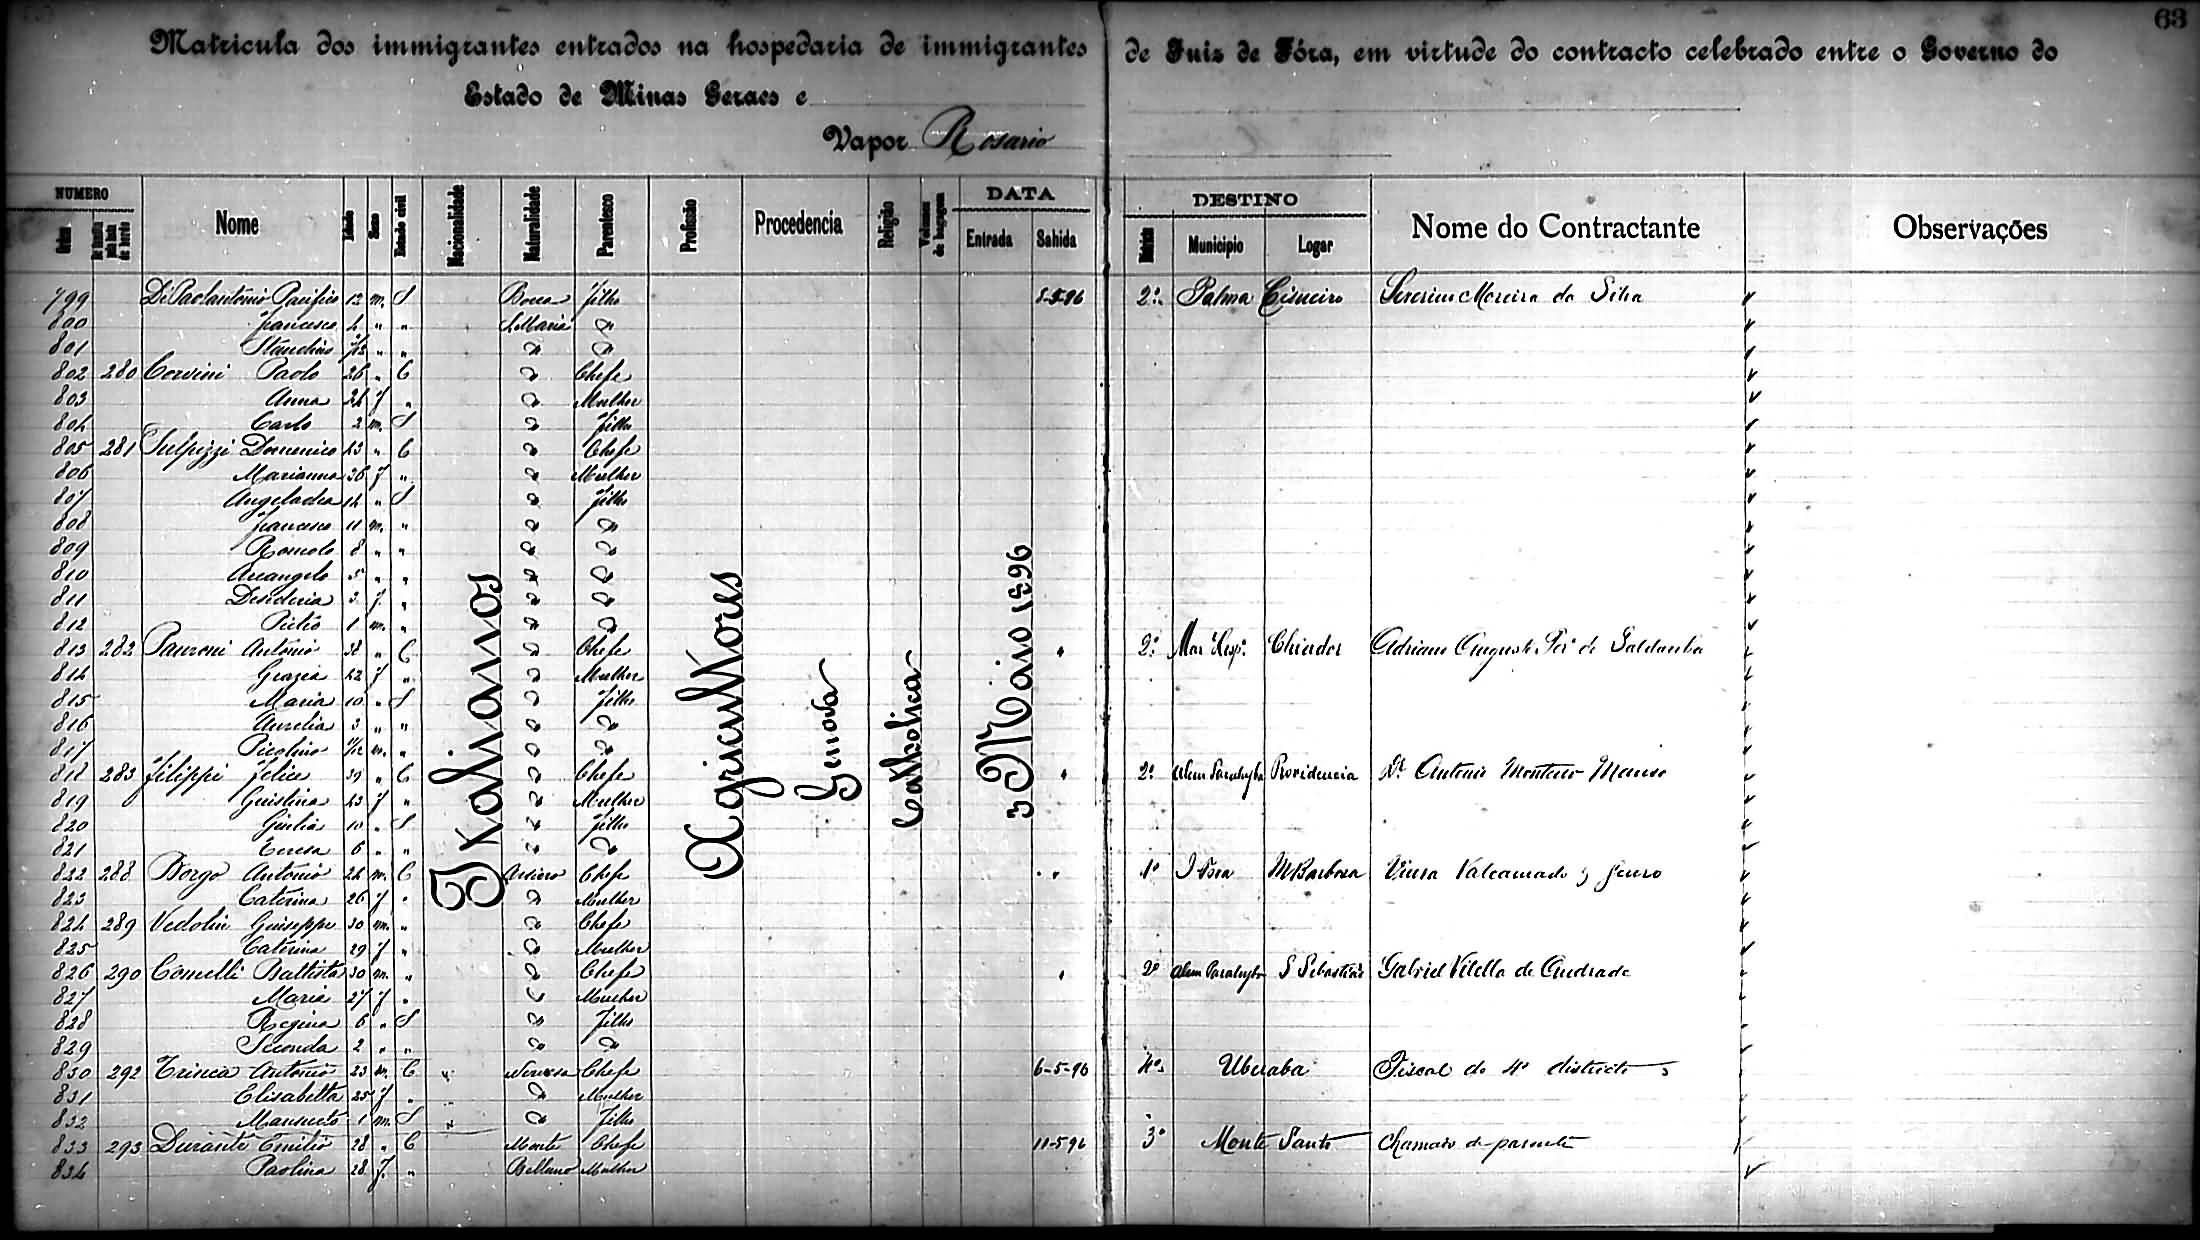 63
Matricula dos immigrantes entrados na hospedaria de immigrantes de Juiz de Fóra, em virtude do contracto celebrado entre o Governo do
Estado de Minas Geraes e
Vapor Rosario
NUMERO Nome Idade Sexo Estado civil Nacionalidade Naturalidade Parentesco Profissão Procedencia Religião Volumes de bagagem DATA Entrada Sahida DESTINO Districto Municipio Logar Nome do Contractante Observações
Italianos Agricultores Genova Catholica 3 Maio 1896
799 Di Paolantonio Pacifico 12 m. S Bocca Filho 5-5-96 2º Palma Cisneiro Severino Moreira da Silva
800 Francesco 4 " " S. Maria "
801 " " " "
802 280 Corvini Paolo 26 " C " Chefe
803 Anna 24 f " " Mulher
804 Carlo 2 m. S " Filho
805 281 Sulpizzi Domenico 43 " C " Chefe
806 Marianna 36 f " " Mulher
807 14 " S " Filho
808 Francesco 11 m. " " "
809 Romolo 8 " " " "
810 Arcangelo 5 " " " "
811 Desideria 3 f. " " "
812 Pietro 1 m. " " "
813 282 Panzoni Antonio 38 " C " Chefe " 2º Mar Hesp. Chiador Adriano Augusto Per.ª de Saldanha
814 Grazia 42 f " " Mulher
815 Maria 10 " S " Filho
816 Aurelia 3 " " " "
817 Nicolino m. " " "
818 283 Filippi Felice 39 " C " Chefe " 2º Alem Parahyba Providencia Dr. Antonio Monteiro Manso
819 Guistina 43 f " " Mulher
820 Giulia 10 " S " Filho
821 Teresa 6 " " " "
822 288 Borgo Antonio 24 m. C Arsiero Chefe " " 1º J Fora M Barbosa Viuva Valcamado & Genro
823 Caterina 26 f " " Mulher
824 289 Vedolin Guiseppe 30 m. " " Chefe
825 Caterina 29 f " " Mulher
826 290 Comelli Battista 30 m. " " Chefe " 2º Alem Parahyba S Sebastião Gabriel Vilella de Andrade
827 Maria 27 f " " Mulher
828 Regina 6 " S " Filho
829 Seconda 2 " " " "
830 292 Trinca Antonio 23 m. C " Nervesa Chefe 6-5-96 4º Uberaba Fiscal do 4º districto
831 Elisabetta 25 f " " " Mulher
832 Mansueto 1 m. S " " Filho
833 293 Durante Emilio 28 " C Monte Chefe 11-5-96 3º Monte Santo Chamado de parente
834 Paolina 28 f. " Belluno Mulher